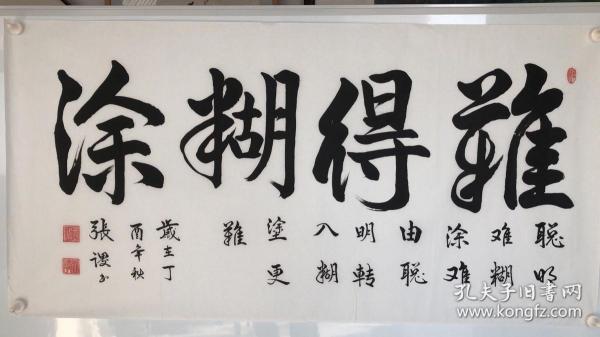 難得糊涂
聪明
难糊
涂难
由聪
明转
入糊
塗更
難
歲在丁
酉年秋
張书
孔夫子旧书网
www.kongfz.com